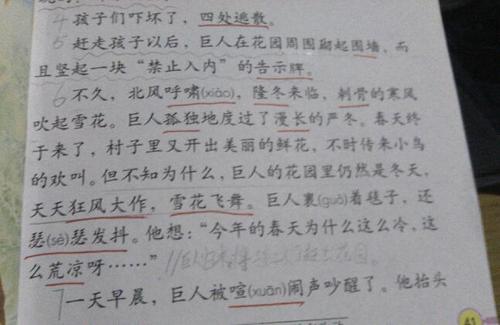 4 孩子们吓坏了，四处逃散。
5 赶走孩子以后，巨人在花园周围砌起围墙，而
且竖起一块“禁止入内”的告示牌。
6 不久，北风呼啸(xiào)，隆冬来临，刺骨的寒风
吹起雪花。巨人孤独地度过了漫长的严冬。春天终
于来了，村子里又开出美丽的鲜花，不时传来小鸟
的欢叫。但不知为什么，巨人的花园里仍然是冬天，
天天狂风大作，雪花飞舞。巨人裹(guǒ)着毯子，还
瑟(sè)瑟发抖。他想：“今年的春天为什么这么冷，这
么荒凉呀……”
7 一天早晨，巨人被喧(xuān)闹声吵醒了。他抬头